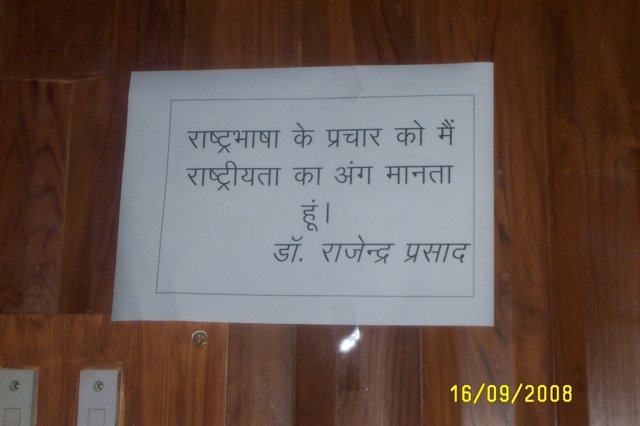 राष्ट्रभाषा के प्रचार को मैं
राष्ट्रीयता का अंग मानता
हूं।
डॉ. राजेन्द्र प्रसाद
16/09/2008